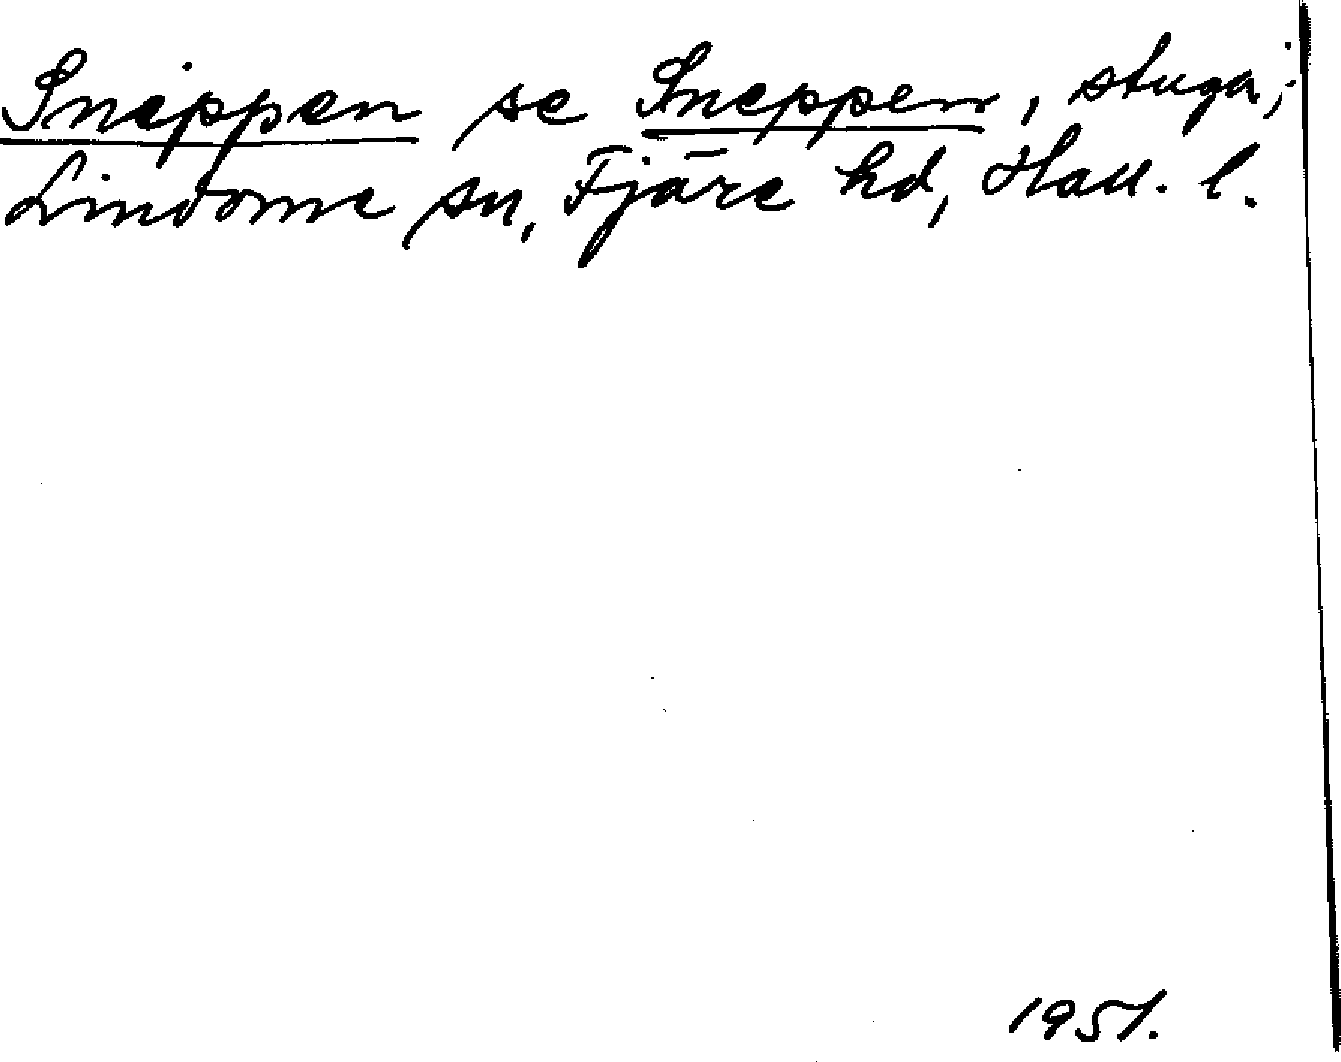 Snippen se Sneppen, stuga, i
Lindome sn, Fjäre hd, Hall. l.
1951.